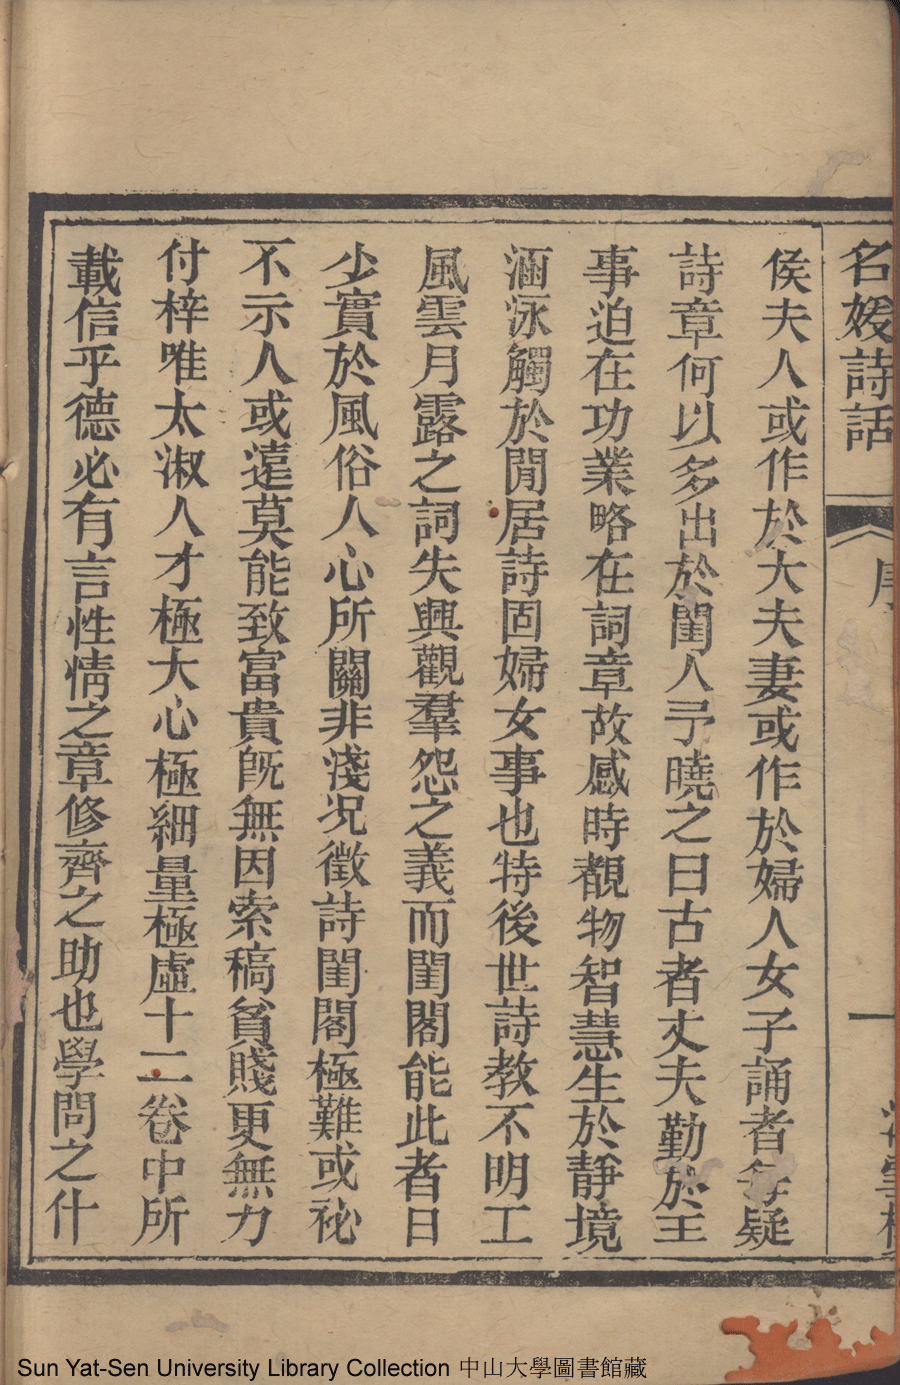 名媛詩話
序
一
侯夫人或作於大夫妻或作於婦人女子誦者每疑
詩章何以多出於閨人予曉之曰古者丈夫勤於王
事迫在功業略在詞章故感時覩物智慧生於靜境
涵泳觸於閒居詩固婦女事也特後世詩教不明工
風雲月露之詞失興觀羣怨之義而閨閣能此者日
少實於風俗人心所關非淺况徵詩閨閣極難或祕
不示人或遠莫能致富貴旣無因索稿貧賤更無力
付梓唯太淑人才極大心極細量極虛十二卷中所
載信乎德必有言性情之章修齊之助也學問之什
Sun Yat-Sen University Library Collection 中山大學圖書館藏